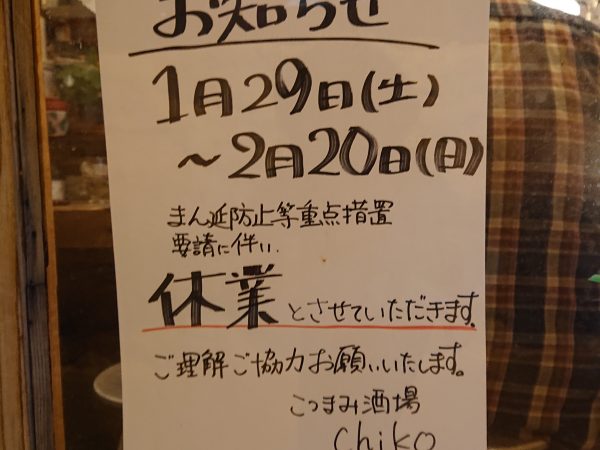 お知らせ
1月29日(土)
～2月20日(日)
まん延防止等重点措置
要請に伴い、
休業とさせていただきます。
ご理解ご協力お願いいたします。
こつまみ酒場
Chiko